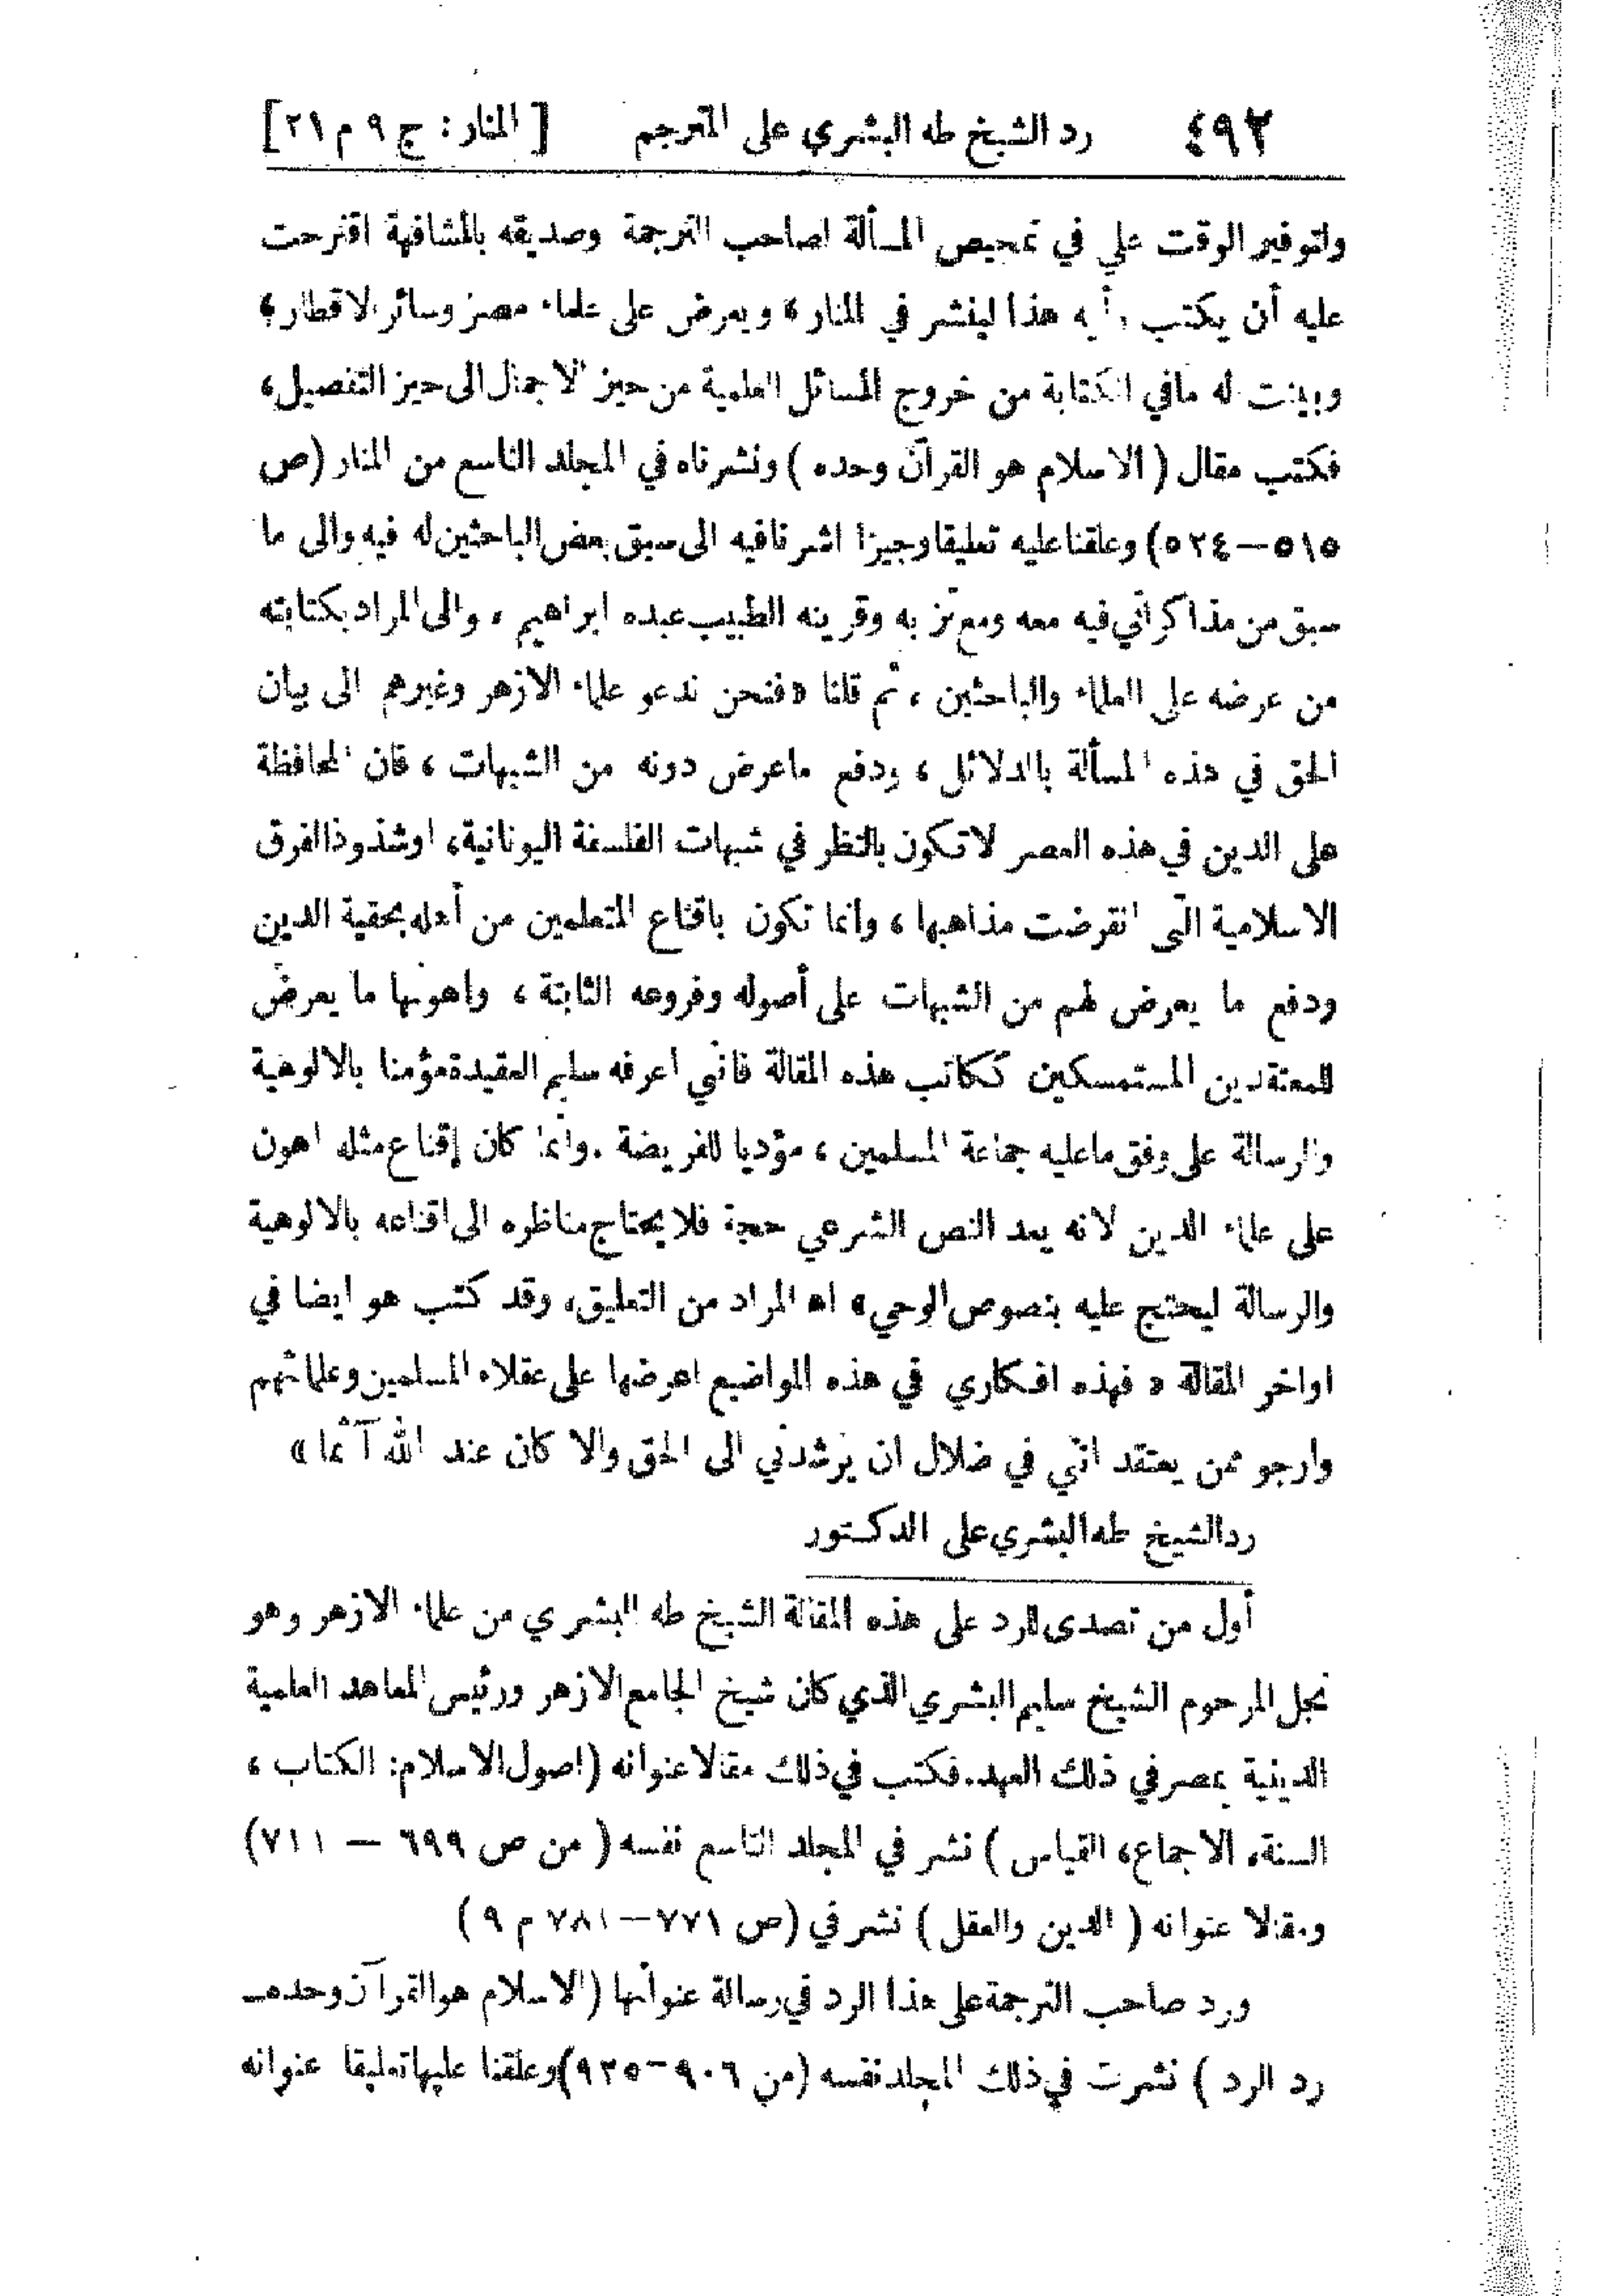 ٤٩٢ رد الشيخ طه البشري على المترجم [ المنار : ج ٩ م ٢١]
ولتوفير الوقت علي في تمحيص المسألة لصاحب الترجمة وصديقه بالمشافهة اقترحت
عليه أن يكتب رأيه هذا لينشر في المنار ، ويعرض على علماء مصر وسائر الاقطار ،
وبينت له مافي الكتابة من خروج المسائل العلمية من حيز الاجمال الى حيز التفصيل ،
فكتب مقال ( الاسلام هو القرآن وحده ) ونشرناه في المجلد التاسع من المنار (ص
٥١٥—٥٢٤) وعلقنا عليه تعليقا وجيزا اشرنا فيه الى سبق بعض الباحثين له فيه والى ما
سبق من مذاكراتي فيه معه ومع تربه وقرينه الطبيب عبده ابراهيم ، والى المراد بكتابته
من عرضه على العلماء والباحثين ، ثم قلنا « فنحن ندعو علماء الازهر وغيرهم الى بيان
الحق في هذه المسألة بالدلائل ، ودفع ماعرض دونه من الشبهات ، فان المحافظة
على الدين في هذه العصر لا تكون بالنظر في شبهات الفلسفة اليونانية ، اوشذوذ الفرق
الاسلامية التي انقرضت مذاهبها ، وانما تكون باقناع المتعلمين من أهله بحقية الدين
ودفع ما يعرض لهم من الشبهات على أصوله وفروعه الثابتة ، واهونها ما يعرض
للمعتقدين المستمسكين ككاتب هذه المقالة فاني اعرفه سليم العقيدة مؤمنا بالالوهية
والرسالة على وفق ماعليه جماعة المسلمين ، مؤديا للفريضة . وانما كان إقناع مثله اهون
على علماء الدين لانه يعد النص الشرعي حجة فلا يحتاج مناظره الى اقناعه بالالوهية
والرسالة ليحتج عليه بنصوص الوحي » اه المراد من التعليق ، وقد كتب هو ايضا في
اواخر المقالة « فهذه افكاري في هذه المواضيع اعرضها على عقلاء المسلمين وعلمائهم
وارجو ممن يعتقد اني في ضلال ان يرشدني الى الحق والا كان عند الله آثما »
رد الشيخ طه البشري على الدكتور
أول من تصدى للرد على هذه المقالة الشيخ طه البشري من علماء الازهر وهو
نجل المرحوم الشيخ سليم البشري الذي كان شيخ الجامع الازهر ورئيس المعاهد العلمية
الدينية بمصر في ذلك العهد . فكتب في ذلك مقالا عنوانه (اصول الاسلام : الكتاب ،
السنة ، الاجماع ، القياس ) نشر في المجلد التاسع نفسه ( من ص ٦٩٩ — ٧١١)
ومقالا عنوانه ( الدين والعقل ) نشر في (ص ٧٧١—٧٨١ م ٩ )
ورد صاحب الترجمة على هذا الرد في رسالة عنوانها (الاسلام هو القرآن وحده —
رد الرد ) نشرت في ذلك المجلد نفسه (من ٩٠٦—٩٢٥) وعلقنا عليها تعليقا عنوانه